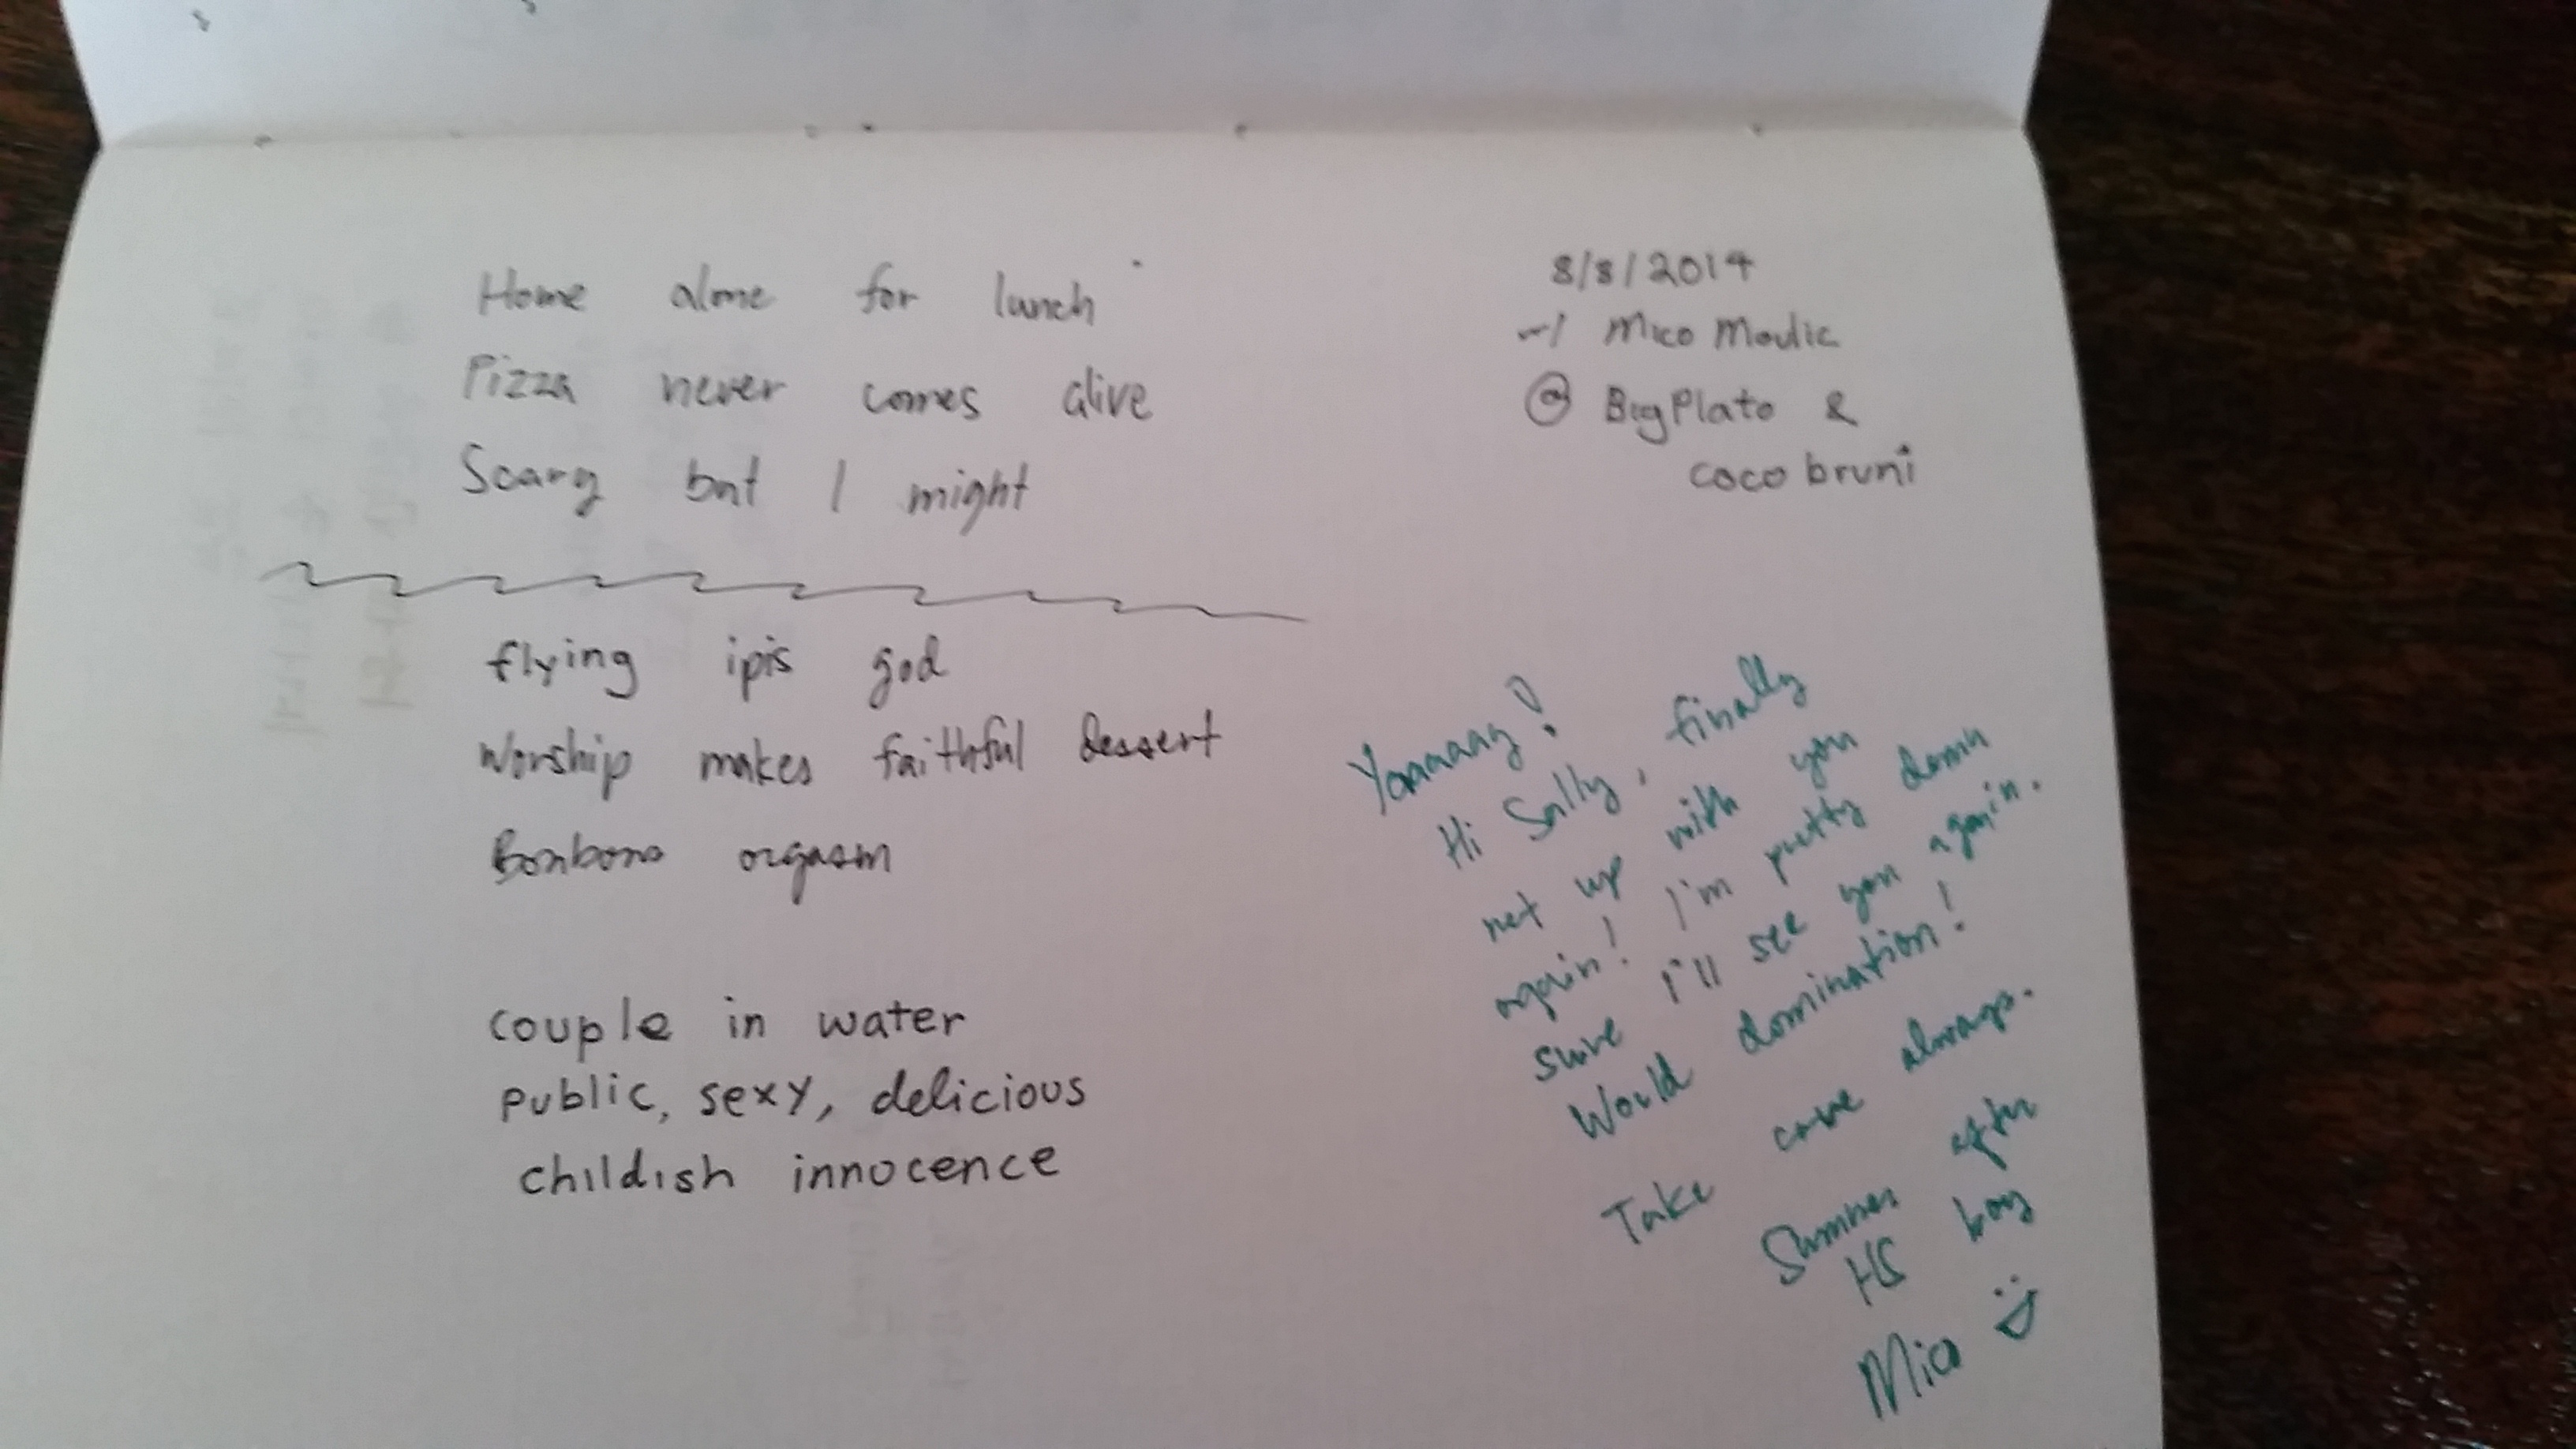 Home alone for lunch
Pizza never comes alive
Scary but I might
flying ipis god
Worship makes faithful dessert
Bonbons orgasm
couple in water
public, sexy, delicious
childish innocence
8/8/2014
w/ Mico
@ Big Plato &
coco bruni
Yaaaaay!
Hi Sally, finally
met up with you
again! I'm pretty damn
sure I'll see you again.
World domination!
Take care always.
Summer after
HS boy
Mico :)